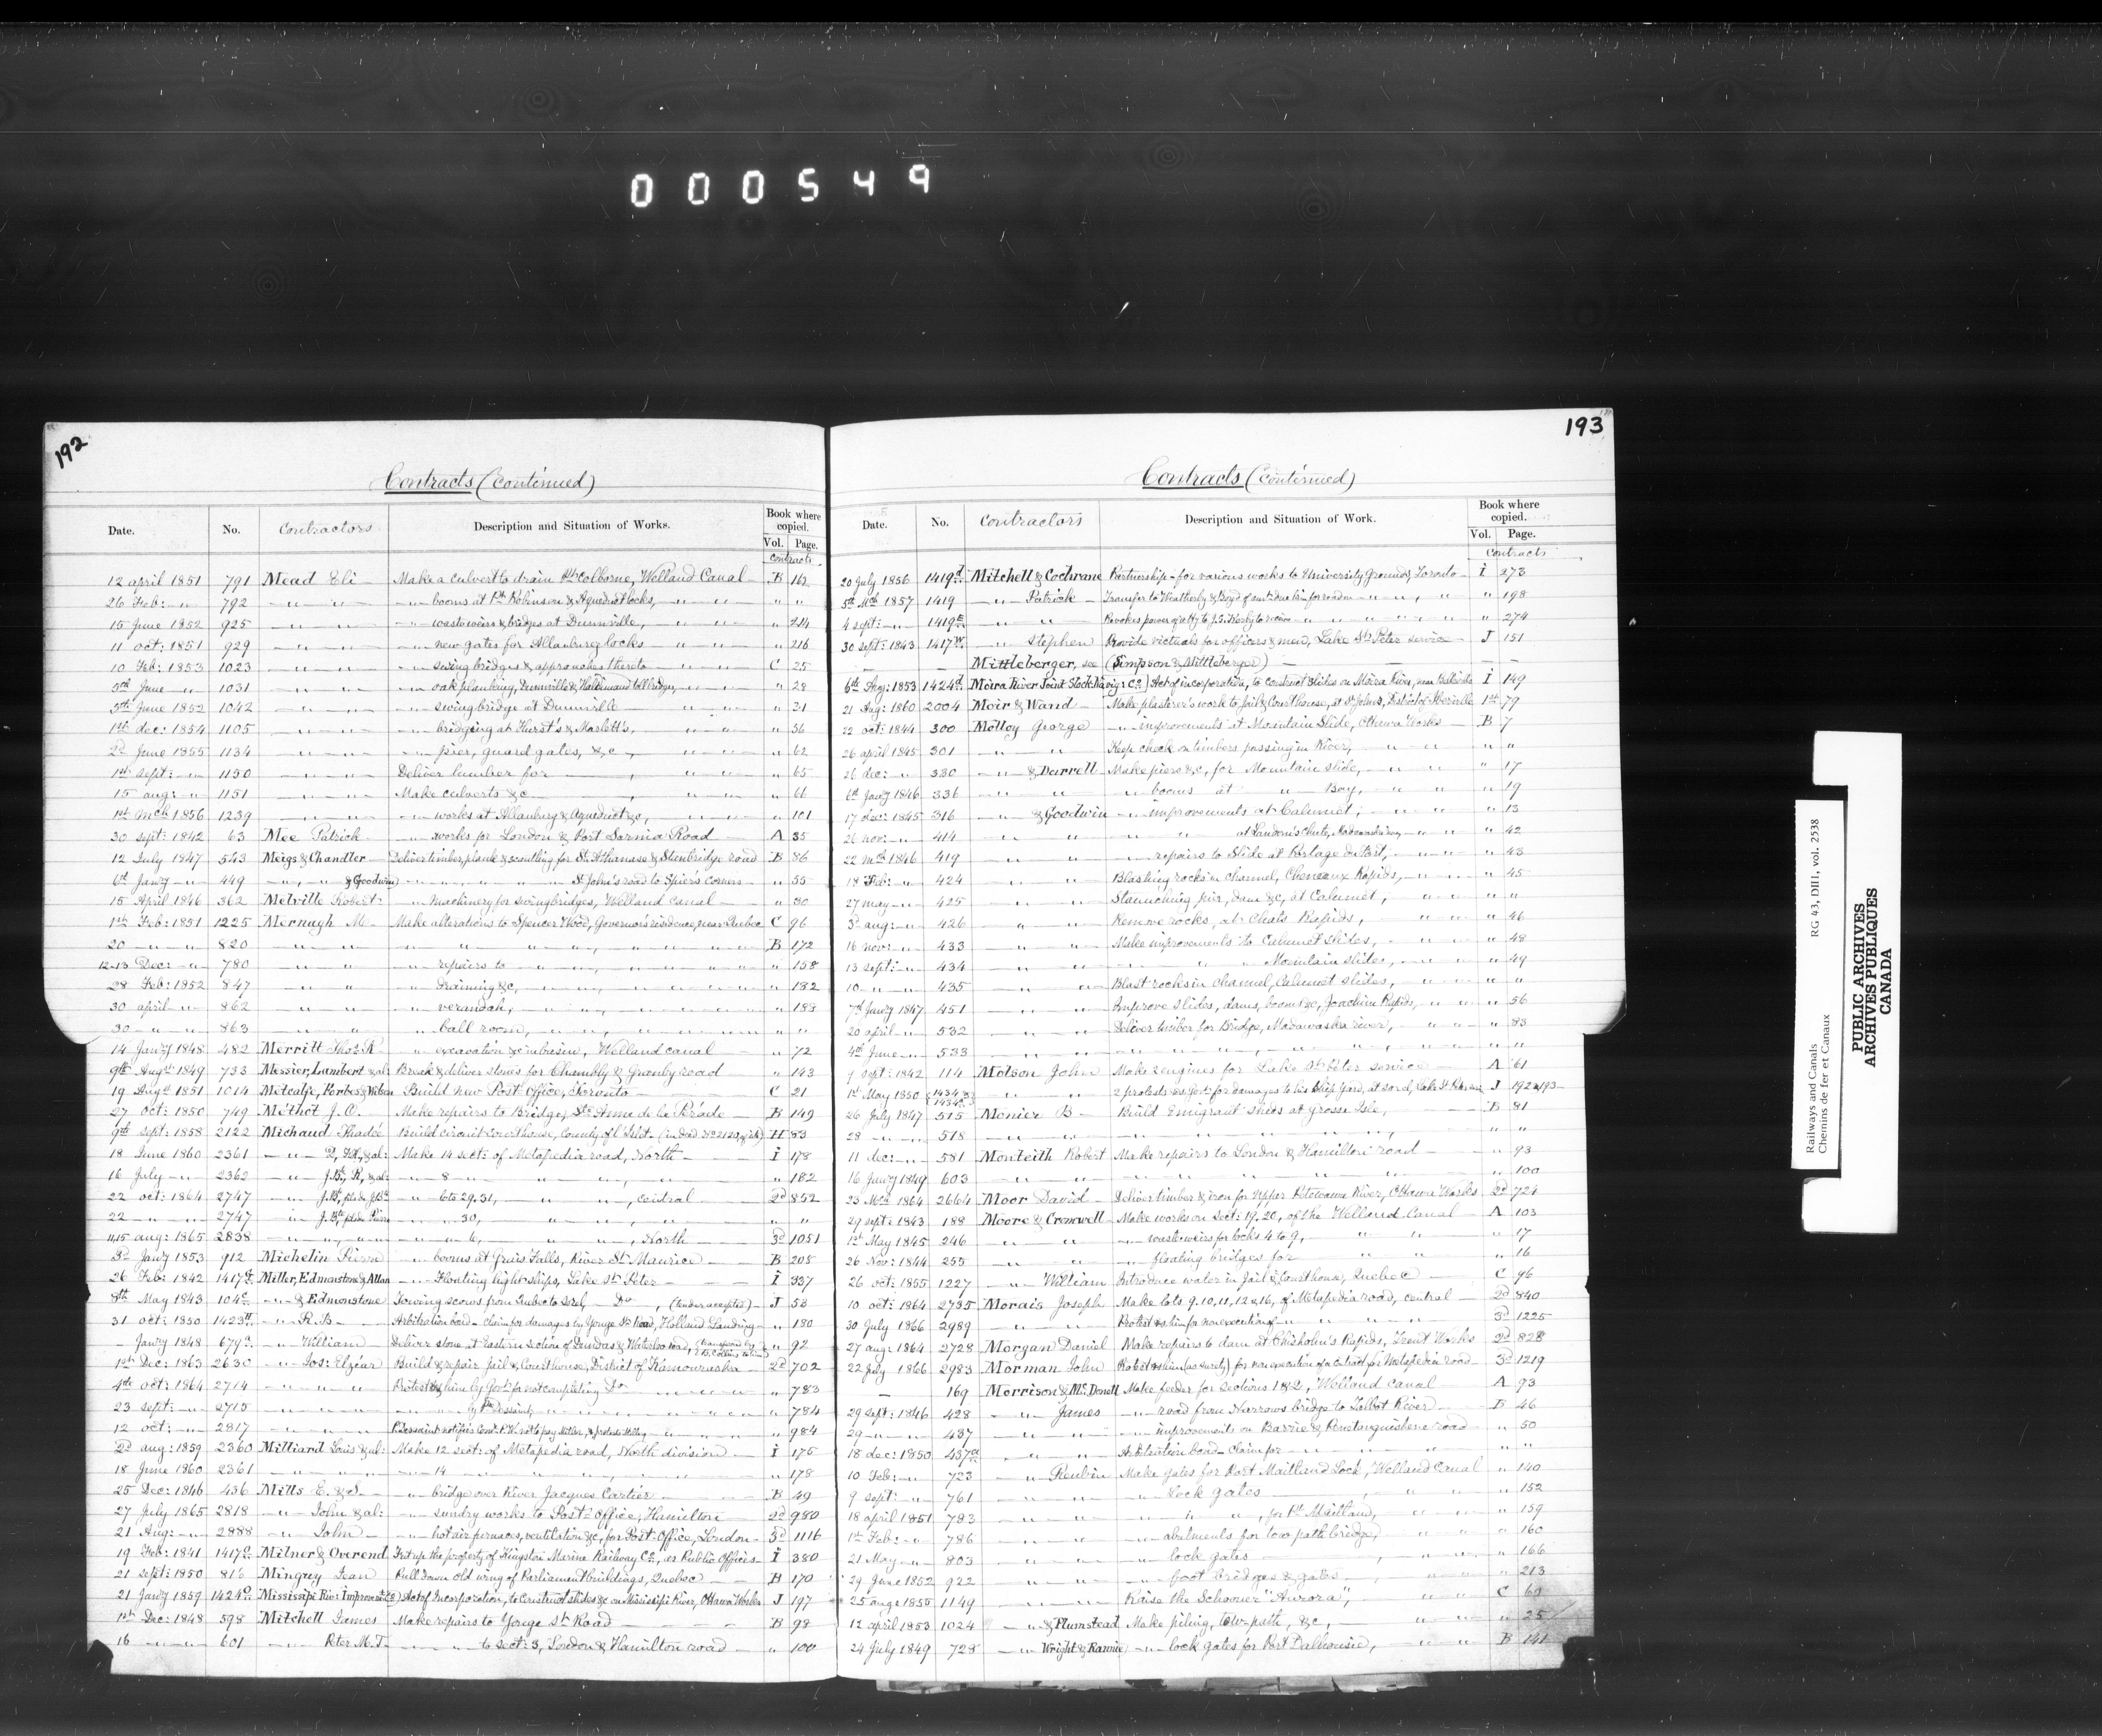 000549
192
Contracts (Continued)
Date. No. Contractors Description and Situation of Works. Book where copied. Vol. Page.
Contracts
12 april 1851 791 Mead Eli Make a culvert to drain Pt Colborne, Welland Canal B 162
26 Feb: " 792 " " " booms at Pt Robinson & Aqueduct locks, " " " "
15 June 1852 925 " " " waste weirs & bridges at Dunnville, " " " 214
11 oct: 1851 929 " " " new gates for Allanburg locks " " " 216
10 Feb: 1853 1023 " " " swing bridges & approaches thereto " " C 25
5th June " 1031 " " " oak planking, Dunnville & Haldimand toll bridges, " " 28
5th June 1852 1042 " " " swing bridge at Dunnville " " " 31
1st dec: 1854 1105 " " " bridging at Hurst's & Marlett's, " " " 56
2d June 1855 1134 " " " pier, guard gates, &c, " " " 62
1st Sept: " 1150 " " Deliver lumber for , " " " 65
15 aug: " 1151 " " Make culverts &c , " " " 66
1st Mch 1856 1239 " " " works at Allanburg & Aqueduct &c, " " " 101
30 sept: 1842 63 Mee Patrick " works for London & Port Sarnia Road A 35
12 July 1847 543 Meigs & Chandler Deliver timber, plank & scantling for St Athanase & Stanbridge road B 86
6th Jany " 449 " " & Goodwin " " " " St John's road to Spier's corners " 55
15 April 1846 362 Melville Robert " machinery for swing bridges, Welland Canal " 30
1st Feb: 1851 1225 Mernagh M. Make alterations to Spencer Wood, Governor's residence, near Quebec C 96
20 " " 820 " " " " " " " B 172
12-13 Dec: " 780 " " " repairs to " " " " 158
28 Feb: 1852 847 " " " draining &c, " " " " 182
30 april " 862 " " " verandah, " " " " 183
30 " " 863 " " " ball room, " " " " "
14 Jany 1848 482 Merritt Thos R. " excavation &c , Welland canal " 72
9th Augst 1849 733 Messier, Lambert & al: Break & deliver stones for Chambly & Granby road " 143
19 Augst 1851 1014 Metcalfe, Forbes & Wilson Build new Post Office, Toronto C 21
27 oct: 1850 749 Méthot J. O. Make repairs to Bridge, Ste Anne de la Pérade B 149
9th sept: 1858 2122 Michaud Thadée Build circuit Court house, County of l'Islet H 83
18 June 1860 2361 " " & al: Make 14 sect: of Metapedia road, North I 178
16 July " 2362 " J. Bte, R, & al: " 8 " " " , " " 182
22 oct: 1864 2747 " J. Bte " 6 to 29. 31, " " , central 2d 852
22 " " 2747 " J. Bte " 30, " " , " " "
11,15 aug: 1865 2838 " " " " " 6, " " , North 3d 1051
3d Jany 1853 912 Michelin Pierre " booms at Grais Falls, River St Maurice B 208
26 Feb: 1842 1417 Miller, Edmonstone & Allan " Floating light-ships, Lake St Peter I 337
8th May 1843 104c " & Edmonstone Towing scows from Quebec to Sorel, Do , (tender accepted) J 53
31 oct: 1850 1423 " R. B. Arbitration bond - claim for damages by Yonge St Road, Holland Landing " 180
Jany 1848 679a " William Deliver stone at Eastern section of Dundas & Waterloo road, " 92
1st Dec: 1863 2630 " Jos: Elzéar Build & repair Jail & Court house, District of Kamouraska 2d 702
4th oct: 1864 2714 " " " Protest him by Govt for not completing Do " " " 783
23 sept: " 2715 " " " by Dessaint, " " " " 784
12 oct: " 2817 " " " " 984
2d aug: 1859 2360 Milliard Louis & al: Make 12 sect: of Metapedia road, North division I 175
18 June 1860 2361 " " " 14 " " " , " " 178
25 Dec: 1846 436 Mills E. & S. " bridge over River Jacques Cartier B 49
27 July 1865 2818 " John & al: " sundry works to Post Office, Hamilton 2d 980
21 Aug: " 2888 " John " hot air furnaces, ventilation &c, for Post Office, London 3d 1116
19 Feb: 1841 1417 Milner & Overend Fit up the property of Kingston Marine Railway Co, as Public Offices I 380
21 Sept: 1850 816 Mingrey Jean Pull down old wing of Parliament buildings, Quebec B 170
21 Jany 1859 1424 Mississipi River Improvement Co) Act of Incorporation, to Construct slides &c on Mississipi River, Ottawa Works J 197
1st Dec: 1848 598 Mitchell James Make repairs to Yonge St Road B 98
16 " " 601 " Peter M. T. " " to sect: 3, London & Hamilton road " 100
193
Contracts (Continued)
Date. No. Contractors Description and Situation of Work. Book where copied. Vol. Page.
Contracts
20 July 1856 1419d Mitchell & Cochrane Partnership - for various works to University Grounds, Toronto I 273
5th Mch 1857 1419 " Patrick Transfer to Weatherly & Boyd of amt due him for road on " " , " " 198
4 sept: " 1419E " " Revokes power of atty to J. S. to receive " " " " 274
30 sept: 1843 1417W " Stephen Provide victuals for officers & men, Lake St Peter service J 151
Mittleberger, see (Simpson & Mittleberger)
6th Aug: 1853 1424d Moira River Joint Stock Navig: Co) Act of incorporation, to construct slides on Moira River, near Belleville I 149
21 Aug: 1860 2004 Moir & Wand Make plasterer's work to jail & Court house, at St Johns, District of Iberville 1st 79
22 oct: 1844 300 Molloy George " improvements at Mountain Slide, Ottawa Works B 7
26 april 1845 301 " " Keep check on timbers passing in River, " " " "
26 dec: " 330 " & Darrell Make piers &c, for Mountain slide, " " " 17
6th Jany 1846 336 " " " booms at " Bay, " " " 19
17 dec: 1845 316 " & Goodwin " improvements at Calumet, " " " 13
26 nov: " 414 " " " " at Landon's Chute, Madawaska River, " " " 42
22 Mch 1846 419 " " " repairs to Slide at Portage du Fort, " " " 43
18 Feb: " 424 " " Blasting rocks in channel, Cheneaux Rapids, " " " 45
27 may " 425 " " Staunching pier, dam &c, at Calumet, " " " "
3d aug: " 426 " " Remove rocks, at Chats Rapids, " " " 46
16 nov: " 433 " " Make improvements to Calumet slides, " " " 48
13 sept: " 434 " " " " " Mountain slides, " " " 49
10 " " 435 " " Blast rocks in channel, Calumet slides, " " " "
7th Jany 1847 451 " " Improve slides, dams, booms &c, Joachim Rapids, " " " 56
20 april " 532 " " Deliver timber for Bridge, Madawaska river, " " " 83
4th June " 533 " " " " " , " " " "
9 sept: 1842 114 Molson John Make engines for Lake St Peter service A 61
1st May 1850 1434 " " 2 protests Govt: for damages to his Ship Yard, at Sorel, Lake St Peter J 192 & 193
26 July 1847 515 Monier B. Build Emigrant sheds at Grosse Isle, B 81
28 " " 518 " " " " " , " "
11 dec: " 581 Monteith Robert Make repairs to London & Hamilton road " 93
16 Jany 1849 603 " " " " " " " 100
23 Mch 1864 2664 Moor David Deliver timber & iron for Upper Petewawa River, Ottawa Works 2d 724
29 sept: 1843 188 Moore & Cromwell Make works on Sect: 19. 20, of the Welland Canal A 103
1st May 1845 246 " " " waste weirs for locks 4 to 9, " " " 17
26 Nov: 1844 255 " " " floating bridges for " " " 16
26 oct: 1855 1227 " William Introduce water in Jail & Court house, Quebec C 96
10 oct: 1864 2735 Morais Joseph Make lots 9. 10, 11, 12 & 16, of Metapedia road, central 2d 840
30 July 1866 2989 " " Protest him for non execution of " " " 3d 1225
27 aug: 1864 2728 Morgan Daniel Make repairs to dam at Chisholm's Rapids, Trent Works 2d 828
22 July 1866 2983 Morman John Protest him (as surety) for non execution of a contract for Metapedia road 3d 1219
169 Morrison & Mc Donell Make feeder for sections 1 & 2, Welland Canal A 93
29 sept: 1846 428 " James " road from Narrows bridge to Talbot River B 46
29 " " 437 " " " improvements on Barrie & Penetanguishene road " 50
18 dec: 1850 437a " " Arbitration bond - claim for " " " " "
10 Feb: " 723 " Reubin Make gates for Port Maitland Lock, Welland Canal " 140
9 sept: " 761 " " " Lock gates , " " " 152
18 april 1851 783 " " " " " , for Pt Maitland, " " " 159
1st Feb: " 786 " " " abutments for tow path bridge, " " " 160
21 May " 803 " " " lock gates , " " " 166
29 June 1852 922 " " " foot bridges & gates " " " 213
25 aug: 1855 1149 " " Raise the Schooner "Aurora", " " C 60
12 april 1853 1024 " & Plumstead Make piling, tow-path, &c, " " " 25
24 July 1849 728 " Wright & Rannie " lock gates for Port Dalhousie, " " B 141
Railways and Canals RG 43, DIII, vol. 2538
Chemins de fer et Canaux
PUBLIC ARCHIVES
ARCHIVES PUBLIQUES
CANADA